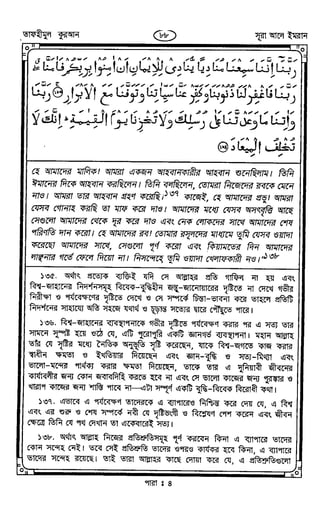 তাফহীমুল কুরআন
৮৮
সূরা আলে ইমরান
رَبَّنَا إِنَّنَا سَمِعْنَا مُنَادِيًا يُنَادِي لِلْإِيمَانِ أَنْ آمِنُوا بِرَبِّكُمْ فَآمَنَّا
رَبَّنَا فَاغْفِرْ لَنَا ذُنُوبَنَا وَكَفِّرْ عَنَّا سَيِّئَاتِنَا وَتَوَفَّنَا مَعَ الْأَبْرَارِ رَبَّنَا
وَآتِنَا مَا وَعَدْتَنَا عَلَى رُسُلِكَ وَلَا تُخْزِنَا يَوْمَ الْقِيَامَةِ إِنَّكَ لَا
تُخْلِفُ الْمِيعَادَ
হে আমাদের মালিক! আমরা একজন আহবানকারীর আহবান শুনেছিলাম। তিনি
ঈমানের দিকে আহবান করছিলেন। তিনি বলছিলেন, তোমরা নিজেদের রবকে মেনে
নাও। আমরা তার আহবান গ্রহণ করেছি।১৩৭ কাজেই, হে আমাদের প্রভু! আমরা
যেসব গোনাহ করছি তা মাফ করে দাও। আমাদের মধ্যে যেসব অসৎবৃত্তি আছে
সেগুলো আমাদের থেকে দূর করে দাও এবং নেক লোকদের সাথে আমাদের শেষ
পরিণতি দান করো। হে আমাদের রব! তোমার রসূলদের মাধ্যমে তুমি যেসব ওয়াদা
করেছো আমাদের সাথে, সেগুলো পূর্ণ করো এবং কিয়ামতের দিন আমাদের
লাঞ্ছনার গর্তে ফেলে দিয়ো না। নিসন্দেহে তুমি ওয়াদা খেলাফকারী নও।১৩৮
১৩৫. অর্থাৎ প্রত্যেক ব্যক্তিই যদি সে আল্লাহর প্রতি গাফিল না হয় এবং
বিশ্ব-জাহানের নিদর্শনসমূহ বিবেক-বুদ্ধিহীন জন্তু-জানোয়ারের দৃষ্টিতে না দেখে গভীর
নিরীক্ষা ও পর্যবেক্ষণের দৃষ্টিতে দেখে ও সে সম্পর্কে চিন্তা-ভাবনা করে তাহলে প্রতিটি
নিদর্শনের সাহায্যে অতি সহজে যথার্থ ও চূড়ান্ত সত্যের দ্বারে পৌঁছুতে পারে।
১৩৬. বিশ্ব-জাহানের ব্যবস্থাপনাকে গভীর দৃষ্টিতে পর্যবেক্ষণ করার পর এ সত্য তার
সামনে সুস্পষ্ট হয়ে ওঠে যে, এটি পুরোপুরি একটি জ্ঞানগর্ভ ব্যবস্থাপনা। মহান আল্লাহ
তাঁর যে সৃষ্টির মধ্যে নৈতিক অনুভূতি সৃষ্টি করেছেন, যাকে বিশ্ব-জগতে কাজ করার
স্বাধীন ক্ষমতা ও ইখতিয়ার দিয়েছেন এবং জ্ঞান-বুদ্ধি ও সত্য-মিথ্যা এবং
ভালো-মন্দের পার্থক্য করার ক্ষমতা দিয়েছেন, তাকে তার এ দুনিয়াবী জীবনের
কার্যাবলীর জন্য কোন জবাবদিহি করতে হবে না এবং সে ভালো কাজের জন্য পুরস্কার ও
খারাপ কাজের জন্য শাস্তি পাবে না—এটা সম্পূর্ণ একটি বুদ্ধি-বিবেক বিরোধী কথা।
১৩৭. এভাবে এ পর্যবেক্ষণ তাদেরকে এ ব্যাপারেও নিশ্চিন্ত করে দেয় যে, এ বিশ্ব
এবং এর শুরু ও শেষ সম্পর্কে নবী যে দৃষ্টিভংগী ও বিশ্লেষণ পেশ করেন এবং জীবন
ক্ষেত্রে তিনি যে পথ দেখান তা একেবারেই সত্য।
১৩৮. অর্থাৎ আল্লাহ নিজের প্রতিশ্রুতিসমূহ পূর্ণ করবেন কিনা এ ব্যাপারে তাদের
কোন সন্দেহ নেই। তবে সেই প্রতিশ্রুতি তাদের ওপরও কার্যকর হবে কিনা, এ ব্যাপারে
তাদের সন্দেহ রয়েছে। তাই তারা আল্লাহর কাছে দোয়া করে যে, এ প্রতিশ্রুতিগুলো
পারা : ৪